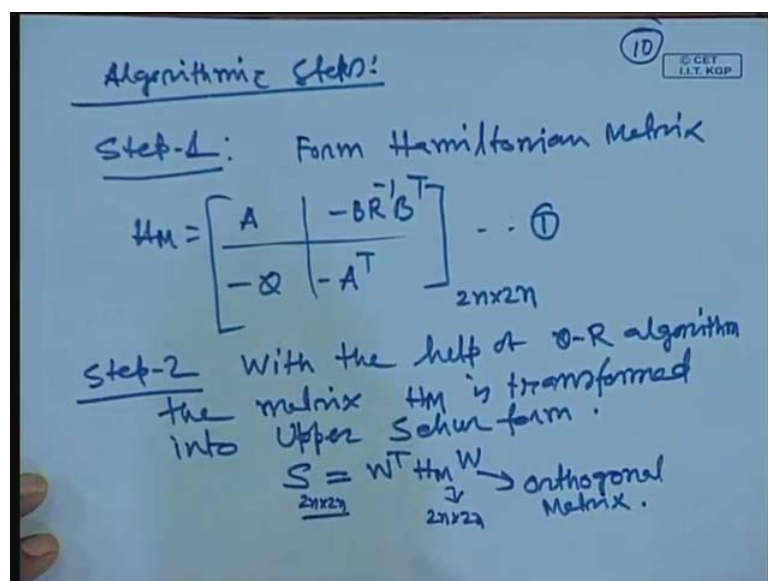 10
© CET
I.I.T. KGP
Algorithmic Steps:
Step-1: Form Hamiltonian Matrix
HM = [ A | -BR⁻¹Bᵀ
-Q | -Aᵀ ] 2n×2n -- ①
Step-2 With the help of Q-R algorithm
the matrix HM is transformed
into Upper Schur form.
S = Wᵀ HM W → orthogonal
2n×2n 2n×2n Matrix.